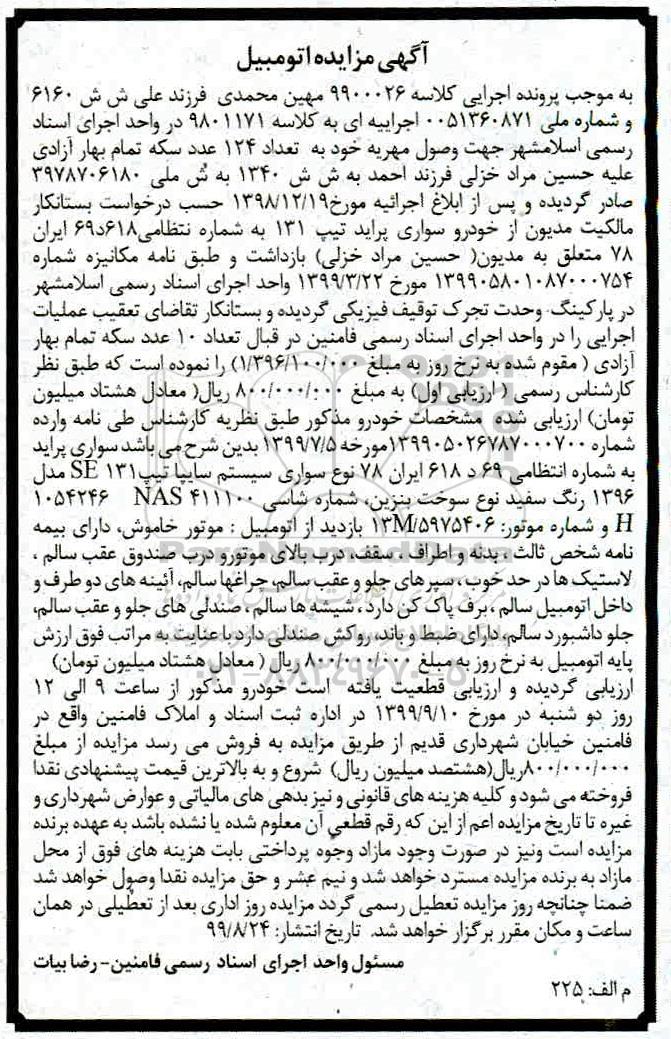 آگهی مزایده اتومبیل
به موجب پرونده اجرایی کلاسه ۹۹۰۰۰۲۶ مهین محمدی فرزند علی ش ش ۶۱۶۰
و شماره ملی ۰۰۵۱۳۶۰۸۷۱ اجراییه ای به کلاسه ۹۸۰۱۱۷۱ در واحد اجرای اسناد
رسمی اسلامشهر جهت وصول مهریه خود به تعداد ۱۲۴ عدد سکه تمام بهار آزادی
علیه حسین مراد خزلی فرزند احمد به ش ش ۱۳۴۰ به ش ملی ۳۹۷۸۷۰۶۱۸۰
صادر گردیده و پس از ابلاغ اجرائیه مورخ۱۳۹۸/۱۲/۱۹ حسب درخواست بستانکار
مالکیت مدیون از خودرو سواری پراید تیپ ۱۳۱ به شماره نتظامی۶۱۸د۶۹ ایران
۷۸ متعلق به مدیون( حسین مراد خزلی) بازداشت و طبق نامه مکانیزه شماره
۱۳۹۹۰۵۸۰۱۰۸۷۰۰۰۷۵۴ مورخ ۱۳۹۹/۳/۲۲ واحد اجرای اسناد رسمی اسلامشهر
در پارکینگ وحدت تجرک توقیف فیزیکی گردیده و بستانکار تقاضای تعقیب عملیات
اجرایی را در واحد اجرای اسناد رسمی فامنین در قبال تعداد ۱۰ عدد سکه تمام بهار
آزادی ( مقوم شده به نرخ روز به مبلغ ۱/۳۹۶/۱۰۰/۰۰۰) را نموده است که طبق نظر
کارشناس رسمی ( ارزیابی اول) به مبلغ ۸۰۰/۰۰۰/۰۰۰ ریال( معادل هشتاد میلیون
تومان) ارزیابی شده مشخصات خودرو مذکور طبق نظریه کارشناس طی نامه وارده
شماره ۱۳۹۹۰۵۰۲۶۷۸۷۰۰۰۷۰۰مورخه ۱۳۹۹/۷/۵ بدین شرح می باشد سواری پراید
به شماره انتظامی ۶۹ د ۶۱۸ ایران ۷۸ نوع سواری سیستم سایپا تیپ۱۳۱ SE مدل
۱۳۹۶ رنگ سفید نوع سوخت بنزین، شماره شاسی NAS ۴۱۱۱۰۰ ۱۰۵۴۲۴۶
H و شماره موتور: ۱۳M/۵۹۷۵۴۰۶ بازدید از اتومبیل : موتور خاموش، دارای بیمه
نامه شخص ثالث ، بدنه و اطراف ، سقف، درب بالای موتورو درب صندوق عقب سالم ،
لاستیک ها در حد خوب ، سپرهای جلو و عقب سالم، چراغها سالم، آئینه های دو طرف و
داخل اتومبیل سالم ، برف پاک کن دارد ، شیشه ها سالم ، صندلی های جلو و عقب سالم،
جلو داشبورد سالم، دارای ضبط و باند، روکش صندلی دارد با عنایت به مراتب فوق ارزش
پایه اتومبیل به نرخ روز به مبلغ ۸۰۰/۰۰۰/۰۰۰ ریال ( معادل هشتاد میلیون تومان)
ارزیابی گردیده و ارزیابی قطعیت یافته است خودرو مذکور از ساعت ۹ الی ۱۲
روز دو شنبه در مورخ ۱۳۹۹/۹/۱۰ در اداره ثبت اسناد و املاک فامنین واقع در
فامنین خیابان شهرداری قدیم از طریق مزایده به فروش می رسد مزایده از مبلغ
۸۰۰/۰۰۰/۰۰۰ریال(هشتصد میلیون ریال) شروع و به بالاترین قیمت پیشنهادی نقدا
فروخته می شود و کلیه هزینه های قانونی و نیز بدهی های مالیاتی و عوارض شهرداری و
غیره تا تاریخ مزایده اعم از این که رقم قطعی آن معلوم شده یا نشده باشد به عهده برنده
مزایده است ونیز در صورت وجود مازاد وجوه پرداختی بابت هزینه های فوق از محل
مازاد به برنده مزایده مسترد خواهد شد و نیم عشر و حق مزایده نقدا وصول خواهد شد
ضمنا چنانچه روز مزایده تعطیل رسمی گردد مزایده روز اداری بعد از تعطیلی در همان
ساعت و مکان مقرر برگزار خواهد شد. تاریخ انتشار: ۹۹/۸/۲۴
مسئول واحد اجرای اسناد رسمی فامنین- رضا بیات
م الف: ۲۲۵